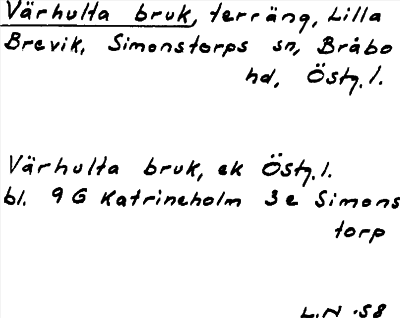 Värhulta bruk, terräng, Lilla
Brevik, Simonstorps sn, Bråbo
hd, Östg. l.
Värhulta bruk, ek Östg. l.
bl. 9G Katrineholm 3e Simons
torp
L.N -58